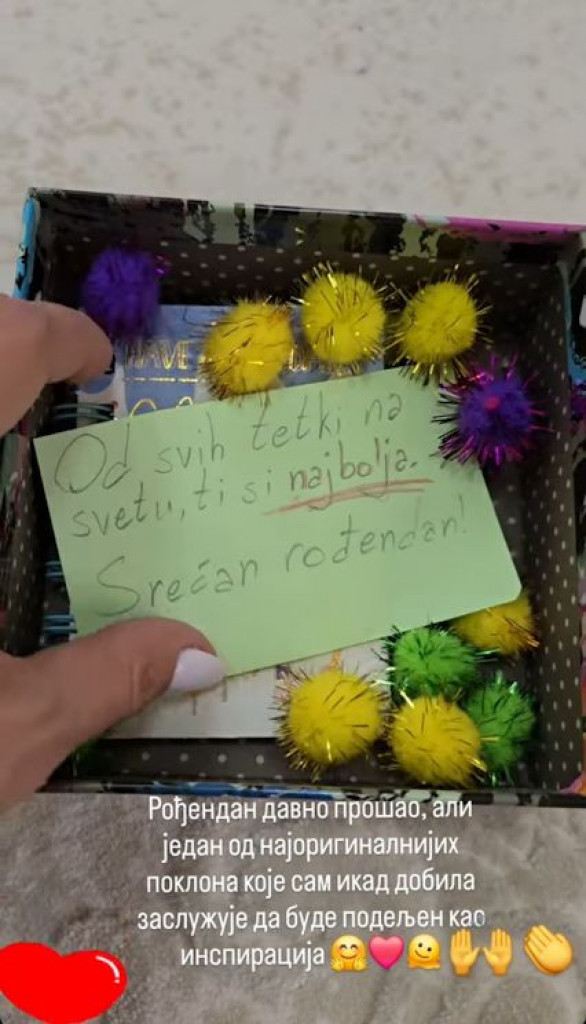 HAVE
Od svih tetki na
svetu, ti si najbolja.
Srećan rođendan!
Рођендан давно прошао, али
један од најоригиналнијих
поклона које сам икад добила
заслужује да буде подељен као
инспирација 🤗💗🫠🙌👏